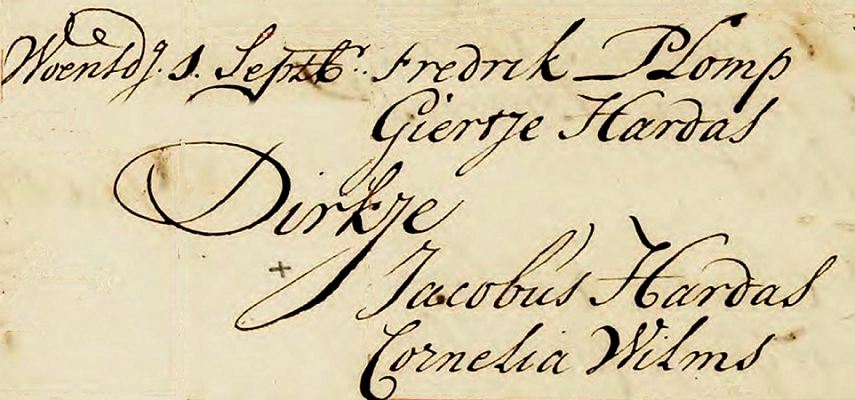 Woensdg. 1. Septbr. Fredrik Plomp
Giertje Hardas
Dirkje
Jacobus Hardas
Cornelia Wilms